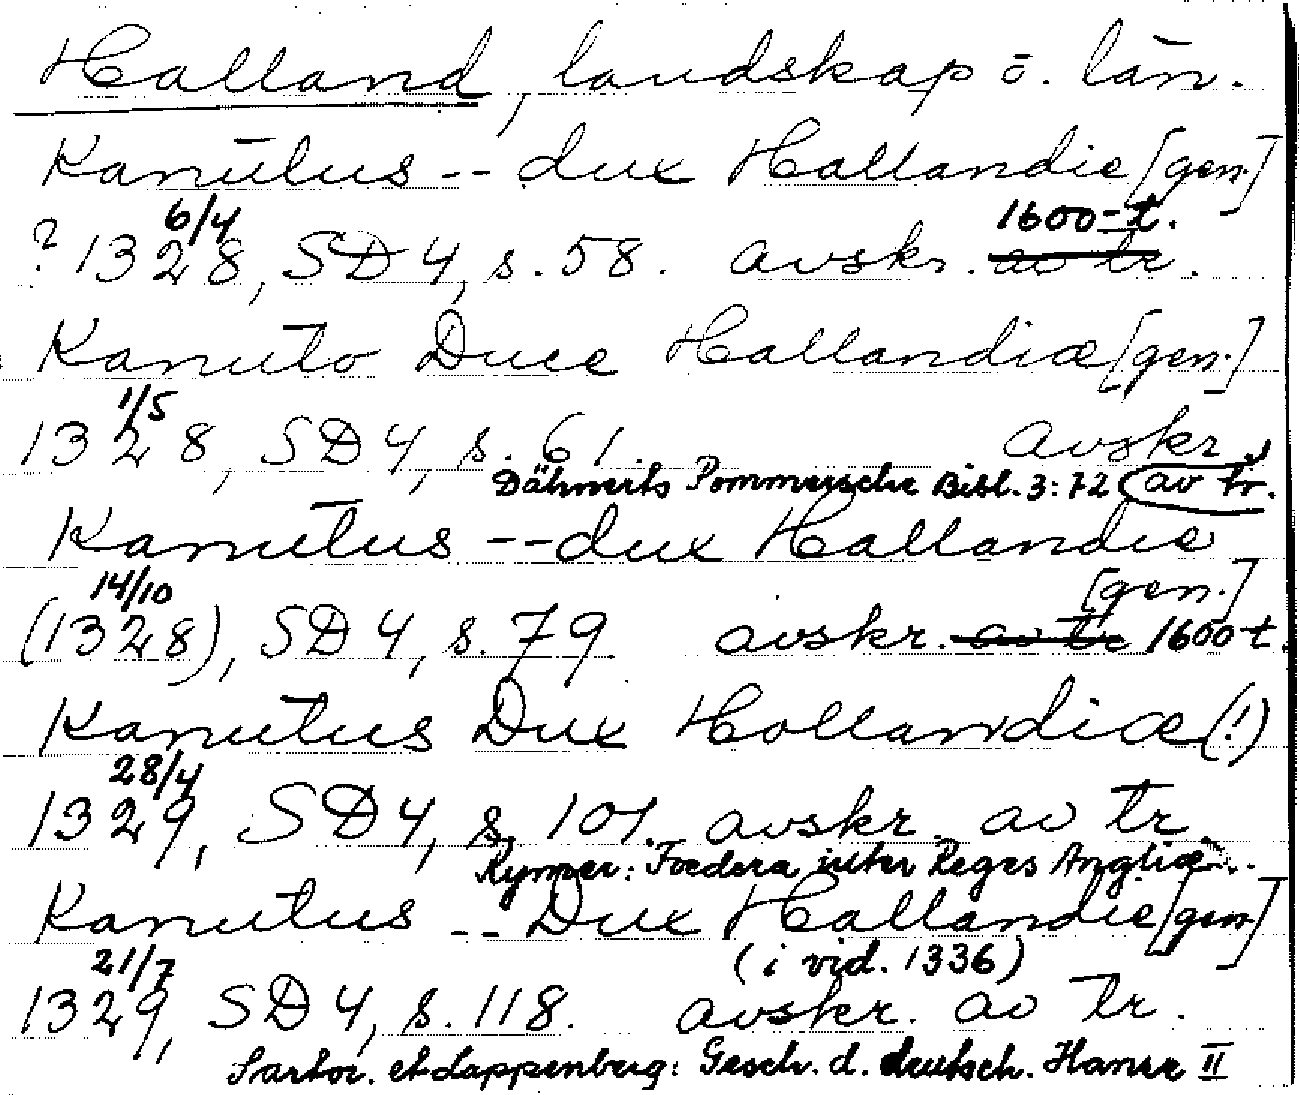 Halland, landskap o. län.
Kanutus -- dux Hallandie [gen.]
6/4 1600-t.
? 1328, SD 4, s. 58. avskr. av tr.
Kanuto Duce Hallandiæ [gen.]
1/5
1328, SD 4, s. 61. avskr.
Dähnerts Pommersche Bibl. 3:72 av tr.
Kanutus -- dux Hallandie
14/10 [gen.]
(1328), SD 4, s. 79 avskr. av tr 1600-t.
Kanutus Dux Hollandiæ (!)
28/4
1329, SD 4, s. 101. avskr. av tr.
Rymer: Foedera inter Reges Angliæ...
Kanutus -- Dux Hallandie [gen.]
21/7 (i vid. 1336)
1329, SD 4, s. 118. avskr. av tr.
Sartor. et Lappenberg: Gesch. d. deutsch. Hanse II